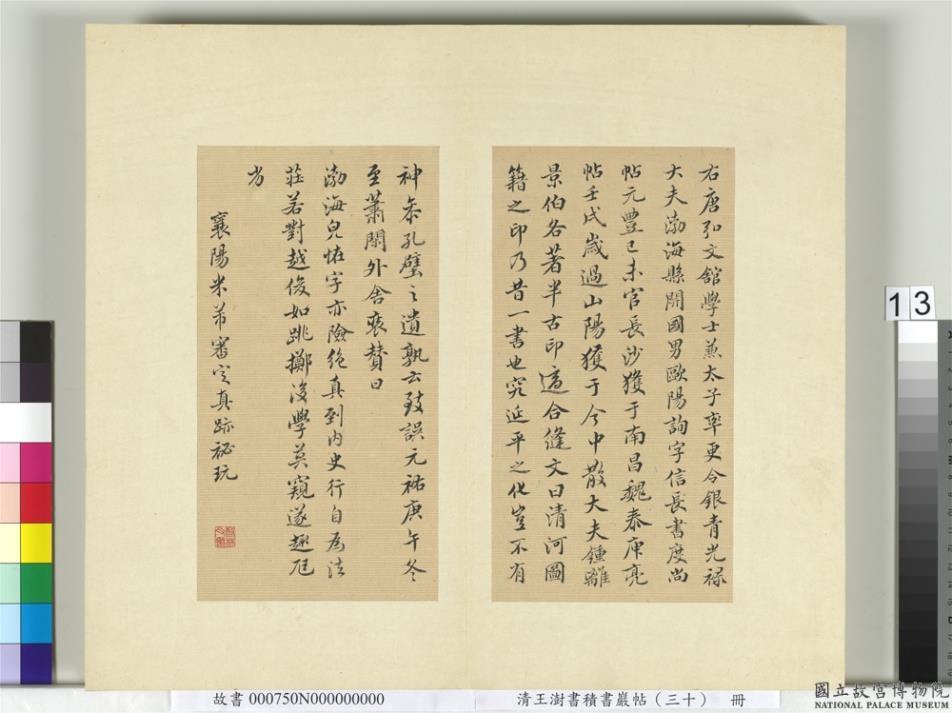 右唐弘文館學士兼太子率更令銀青光祿
大夫渤海縣開國男歐陽詢字信長書度尚
帖元豐己未官長沙獲于南昌魏泰庾亮
帖壬戌歲過山陽獲于今中散大夫鍾離
景伯各著半古印適合縫文曰清河圖
籍之印乃昔一書也究延平之化豈不有
神叅孔壁之遺孰云致誤元祐庚午冬
至蕭閑外舍裝贊曰
渤海兒怪字亦險絶真到內史行自為法
莊若對越俊如跳擲後學莫窺遂趣尫
劣
襄陽米芾審定真跡祕玩
13
故書 000750N000000000
清王澍書積書巖帖（三十） 冊
國立故宮博物院
NATIONAL PALACE MUSEUM